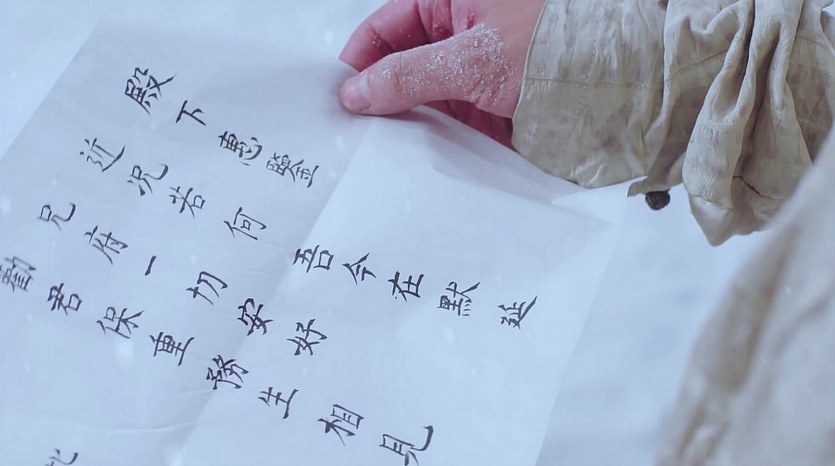 殿下惠鑒
近況若何 吾今在默延
兄府一切安好
君保重 務生相見